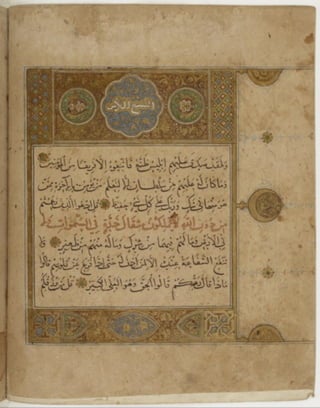 السبع
ولقد صدق عليهم إبليس ظنه فاتبعوه إلا فريقا من المؤمنين
وما كان له عليهم من سلطان إلا لنعلم من يؤمن بالآخرة ممن
هو منها في شك وربك على كل شيء حفيظ قل ادعوا الذين زعمتم
من دون الله لا يملكون مثقال ذرة في السموات ولا
في الأرض وما لهم فيهما من شرك وما له منهم من ظهير ولا
تنفع الشفاعة عنده إلا لمن أذن له حتى إذا فزع عن قلوبهم قالوا
ماذا قال ربكم قالوا الحق وهو العلي الكبير قل من يرزقكم